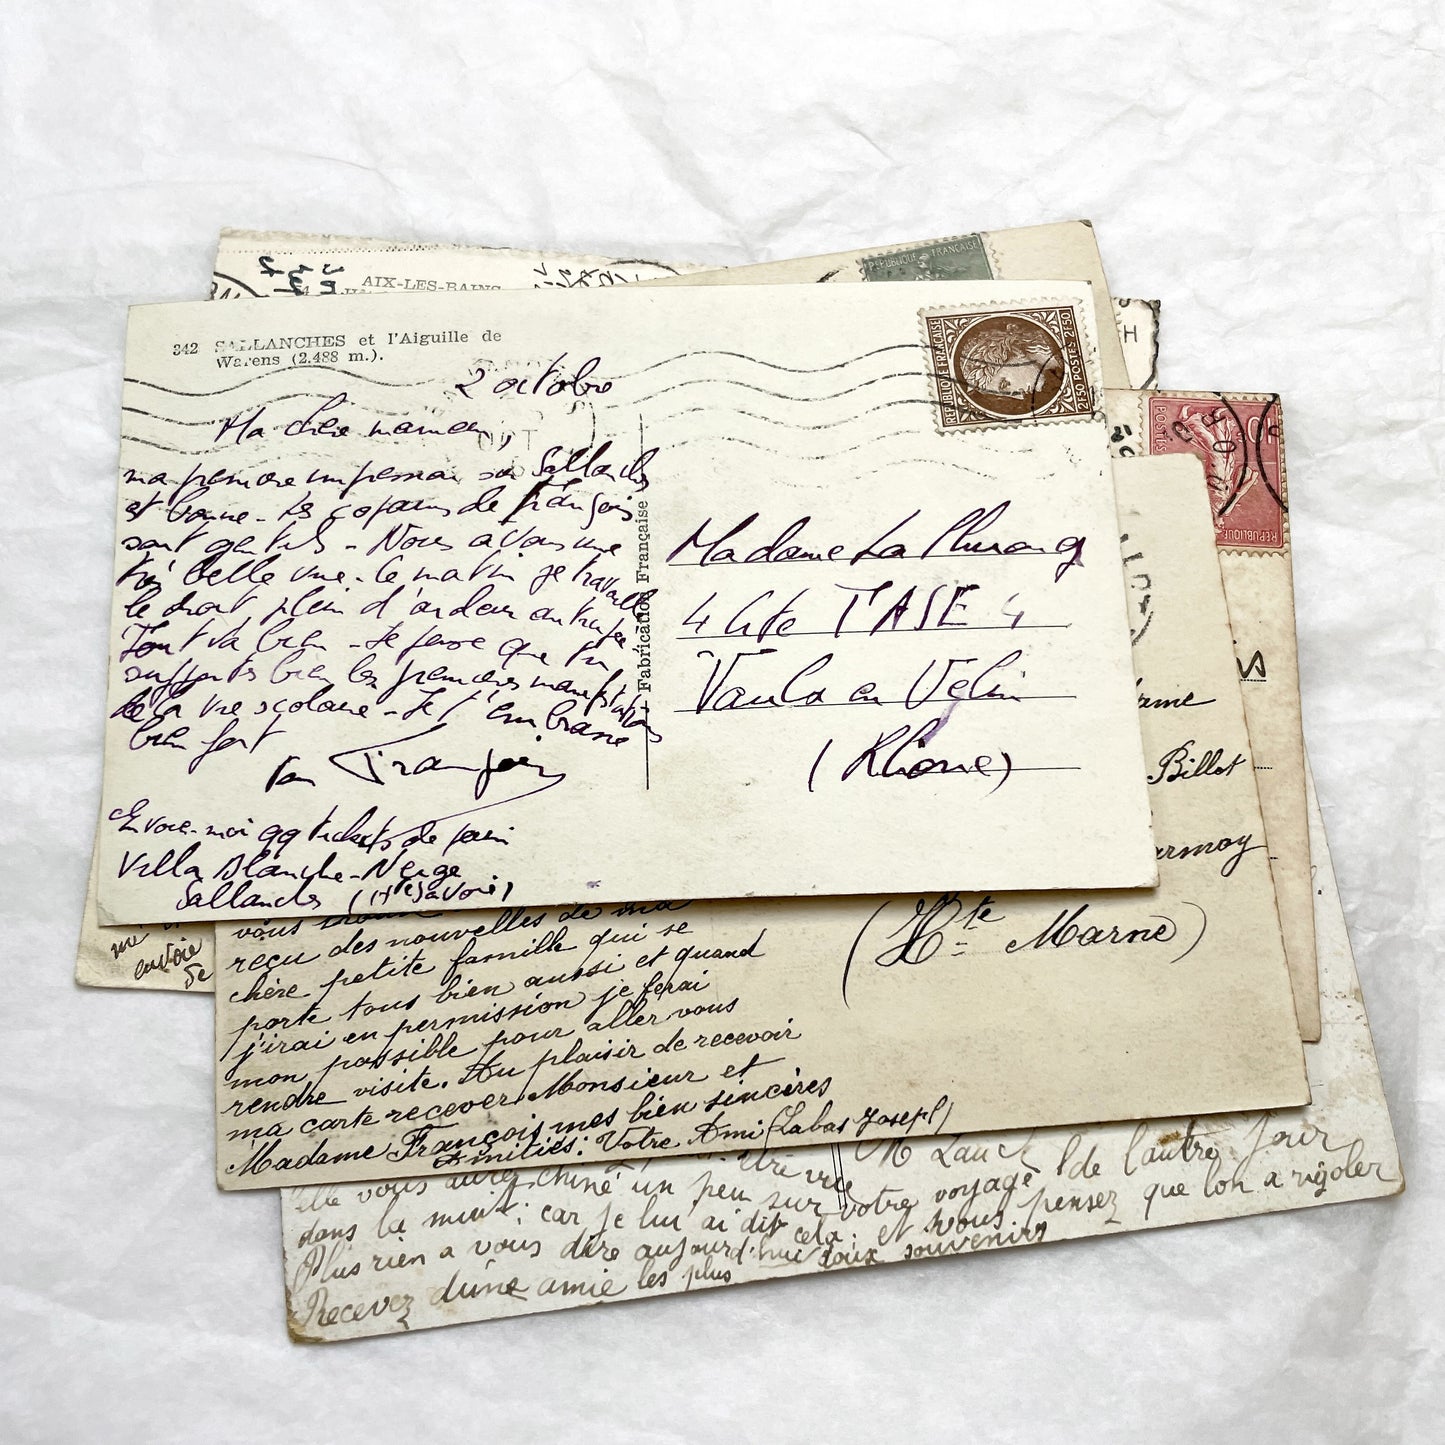 AIX-LES-BAINS
RÉPUBLIQUE FRANÇAISE
342 SALLANCHES et l'Aiguille de
Warens (2.488 m.).
RÉPUBLIQUE FRANÇAISE
2F50 POSTES 2F50
2 octobre
Ma chère maman,
ma première impression sur Sallanches
est bonne - Les copains de François
sont gentils - Nous avons une
très belle vue - le matin je travaille
le droit plein d'ardeur
Tout va bien - Je pense que tu
supportes bien les premières manifestations
de la vie scolaire - Je t'embrasse
bien fort
Envoie-moi qq tickets de pain
Villa Blanche-Neige
Sallanches (Hte Savoie)
Fabrication Française
Madame La
4 Cité TASE 4
Vaulx en Velin
(Rhône)
POSTES
RÉPUBLIQUE
Billot
envoie
de
(Hte Marne)
vous
reçu des nouvelles de ma
chère petite famille qui se
porte tous bien aussi et quand
j'irai en permission je ferai
mon possible pour aller vous
rendre visite. Au plaisir de recevoir
ma carte recever Monsieur et
Madame François mes bien sincères
Amitiés: Votre Ami (Labas Joseph)
Elle vous aurez chiné un peu sur votre voyage de l'autre jour
dans la nuit; car je lui ai dit cela; et vous pensez que l'on a rigoler
Plus rien a vous dire aujourd'hui
Recevez d'une amie les plus doux souvenirs